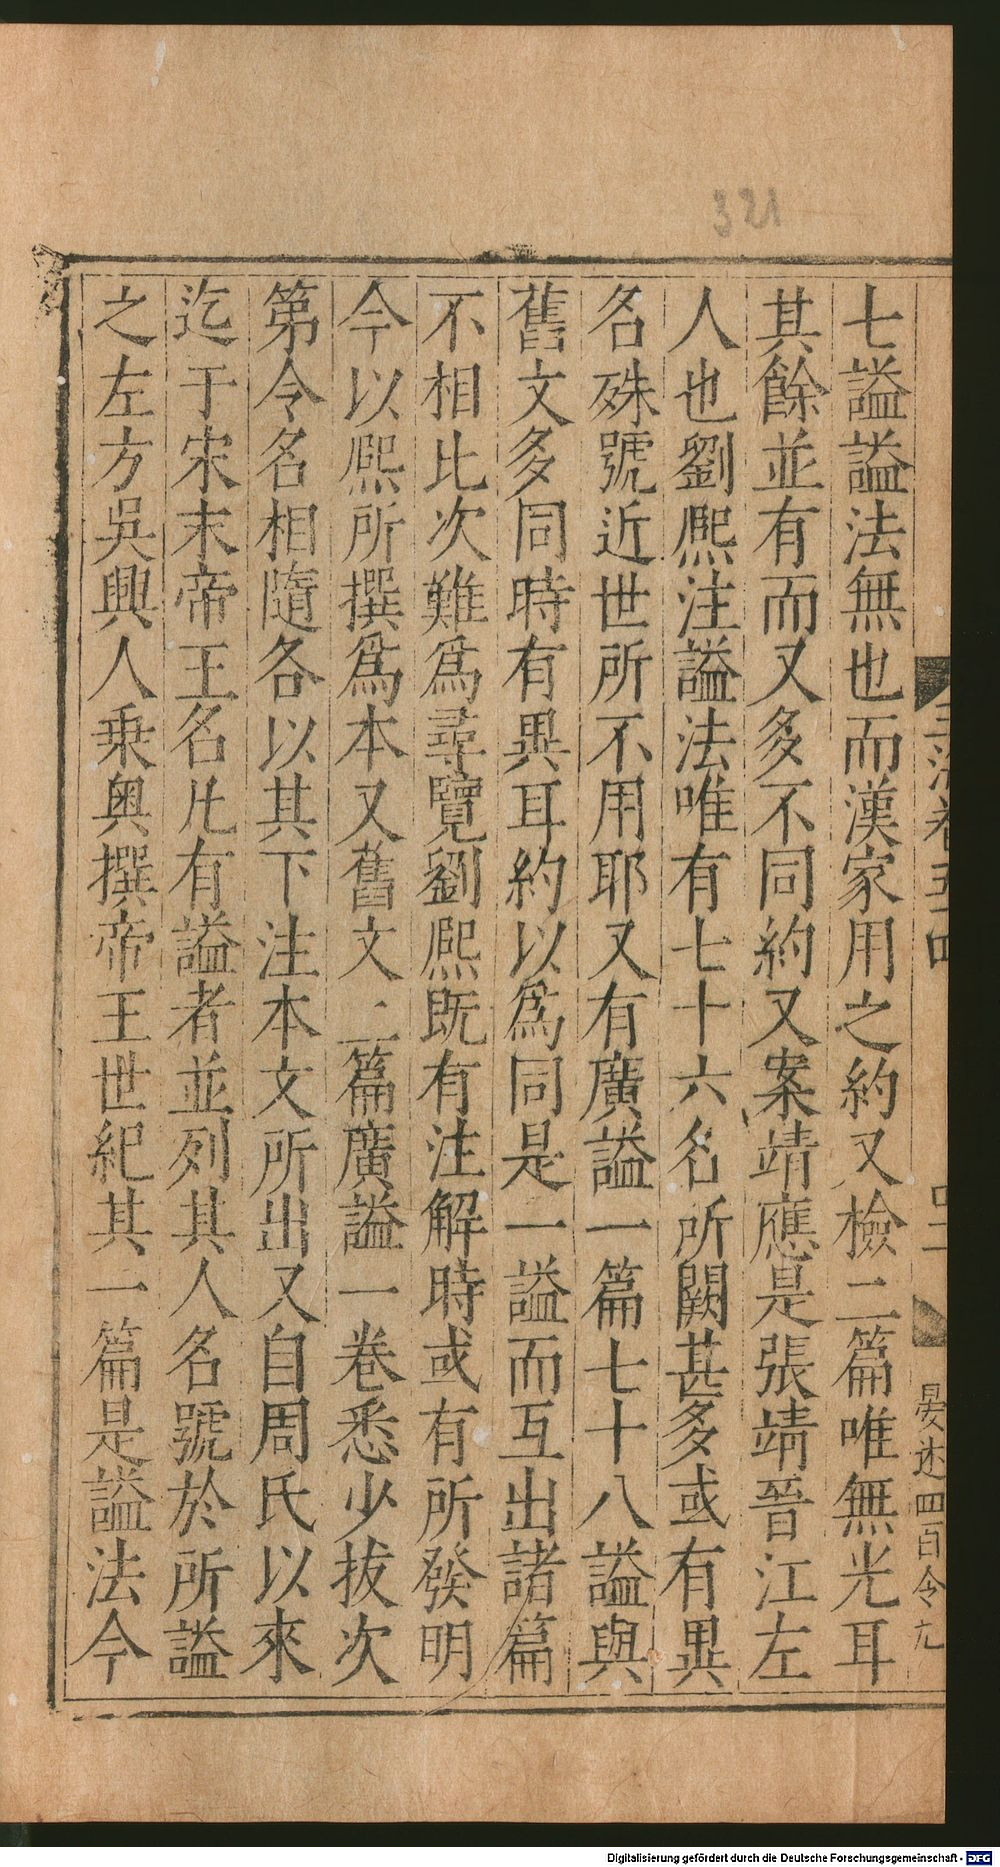 321
七謚謚法無也而漢家用之約又檢二篇唯無光耳
其餘並有而又多不同約又案靖應是張靖晉江左
人也劉熈注謚法唯有七十六名所闕甚多或有異
名殊號近世所不用耶又有廣謚一篇七十八謚與
舊文多同時有異耳約以爲同是一謚而互出諸篇
不相比次難爲尋覽劉熈既有注解時或有所發明
今以熈所撰爲本又舊文二篇廣謚一卷悉少拔次
第令名相隨各以其下注本文所出又自周氏以來
迄于宋末帝王名凡有謚者並列其人名號於所謚
之左方吳興人乗奥撰帝王世紀其一篇是謚法今
卷五十四
四二
晏述四百令九
Digitalisierung gefördert durch die Deutsche Forschungsgemeinschaft - DFG